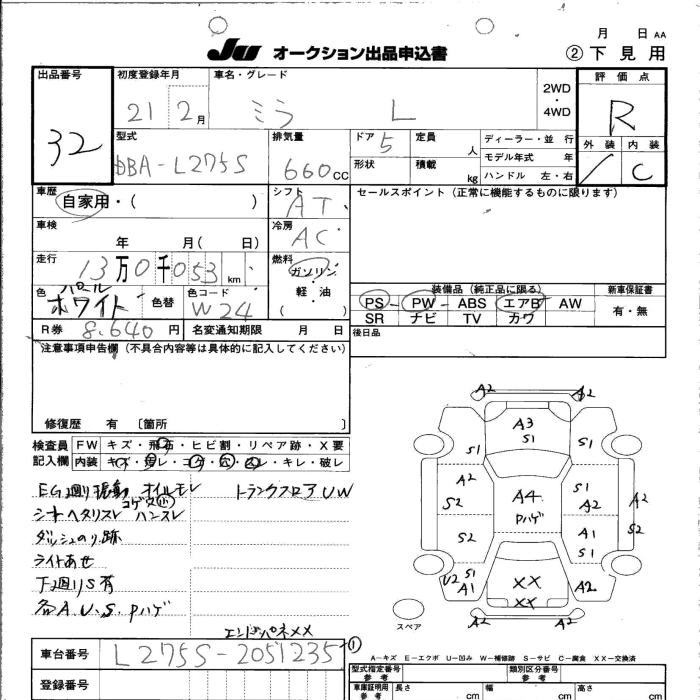 月 日 AA
JU オークション出品申込書 ② 下見用
出品番号 初度登録年月 車名・グレード 2WD・4WD 評価点
32 21 2月 ミラ L R
型式 排気量 ドア 定員 ディーラー・並行 外装 内装
DBA-L275S 660cc 5 人 モデル年式 年 / C
形状 積載 kg ハンドル 左・右
車歴 シフト セールスポイント (正常に機能するものに限ります)
自家用・( ) AT
車検 冷房
年 月( 日) AC
走行 燃料
13万0千053km ガソリン・軽・油 ( )
色 パールホワイト 色替 色コード W24
装備品 (純正品に限る) 新車保証書
PS - PW - ABS エアB AW 有・無
SR ナビ TV カワ
R券 8,640円 名変通知期限 月 日 後日品
注意事項申告欄 (不具合内容等は具体的に記入してください)
修復歴 有 〔箇所 〕
検査員記入欄 FW キズ・飛石・ヒビ割・リペア跡・X要
内装
キレ・破レ
EG廻り オイルモレ トランクフロアUW
コゲ穴(小)
シートヘタリスレ ハンスレ
ダッシュのり跡
ライトあせ
下廻りS有
各A.U.S.Pハゲ
エンドパネXX
車台番号 L275S-2051235 ①
登録番号
A2 A2
A3
S1
S1 S1
A2 S1 A2
S2 A4 A2 S2
Pハゲ
S2 A1
S1
U2 S1 XX A2
A1 XX
A2 A2
スペア
A-キズ E-エクボ U-凹み W-補修跡 S-サビ C-腐食 XX-交換済
型式指定番号 参考 類別区分番号 参考
車庫証明用 参考 長さ cm 幅 cm 高さ cm